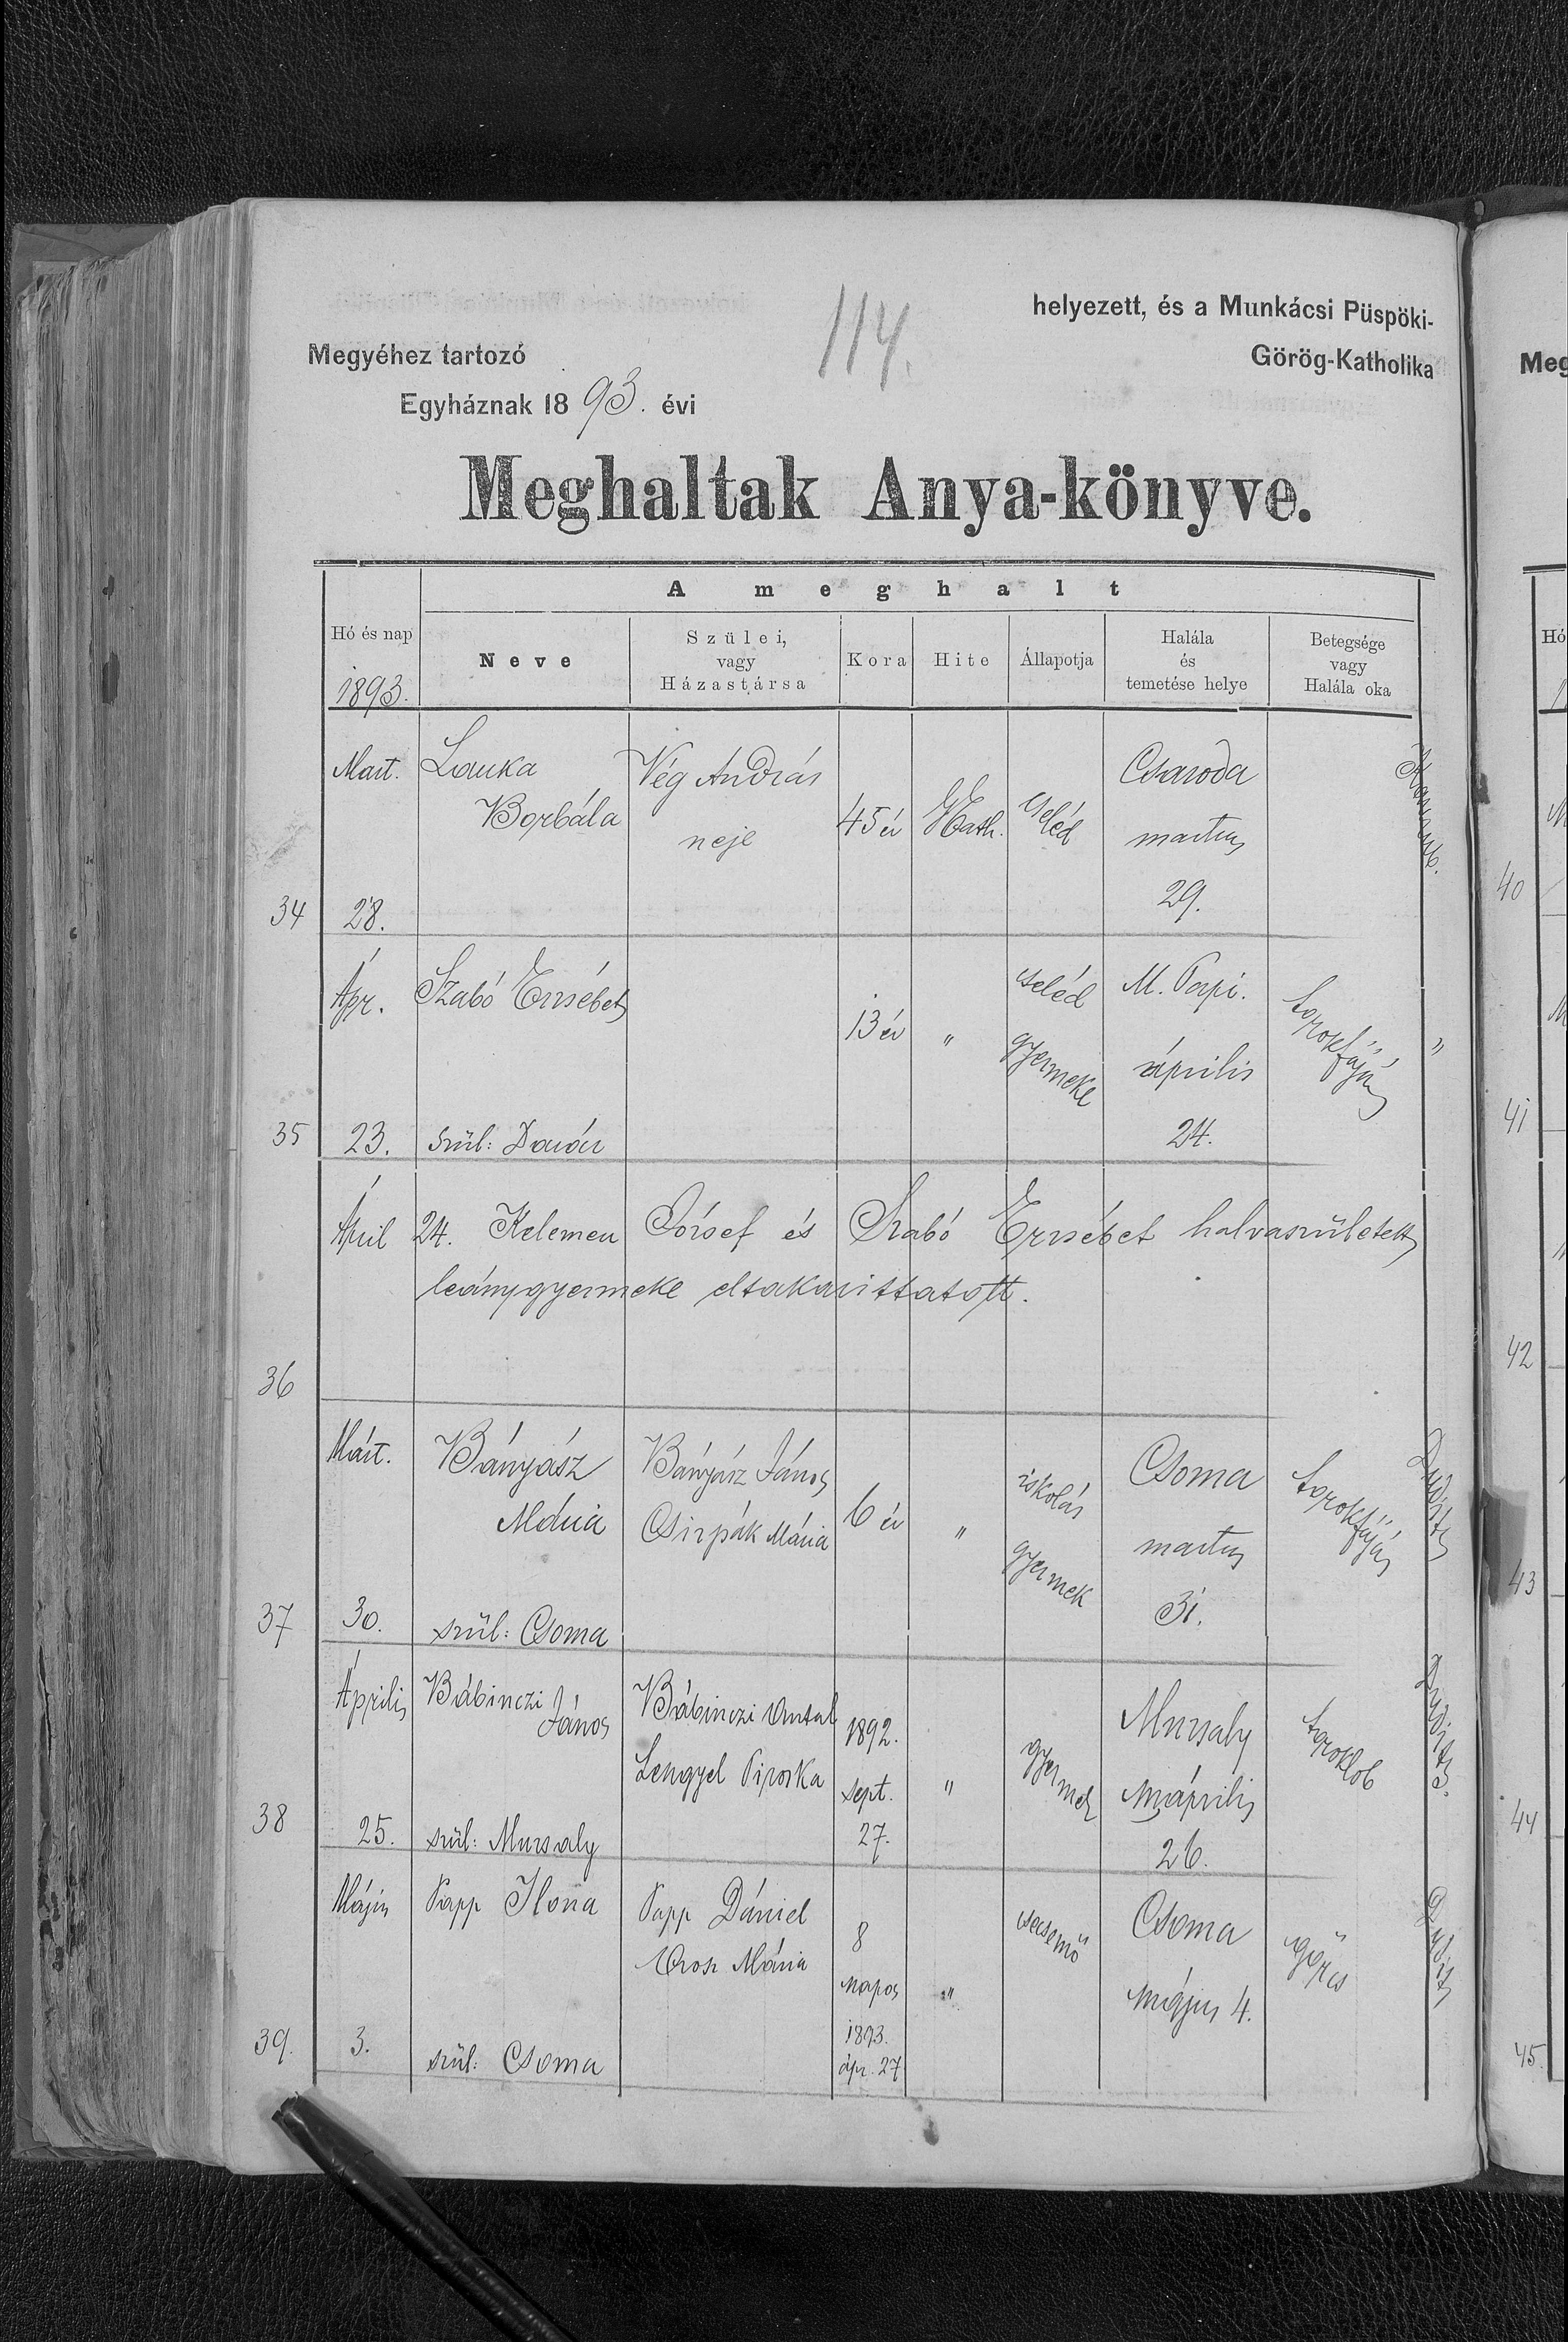 114.
helyezett, és a Munkácsi Püspöki-
Megyéhez tartozó
Görög-Katholika
Egyháznak 1893. évi
Meghaltak Anya-könyve.
A meghalt
Hó és nap
1893.
Neve
Szülei,
vagy
Házastársa
Kora
Hite
Állapotja
Halála
és
temetése helye
Betegsége
vagy
Halála oka
34
Mart.
28.
Lauka
Borbála
Vég András
neje
45 év
GKath.
cseléd
Csaroda
martius
29.
35
Ápr.
23.
Szabó Erzsébet
szül: Darócz
13 év
"
cseléd
gyermeke
M. Papi.
április
24.
torokfájás
"
36
April 24. Kelemen József és Szabó Erzsébet halvaszületett
leánygyermeke eltakaríttatott.
37
Márt.
30.
Bányász
Mária
szül: Csoma
Bányász János
Csirpák Mária
6 év
"
iskolás
gyermek
Csoma
martius
31.
torokfájás
38
Április
25.
Bábinczi
János
szül: Muzsaly
Bábinczi Antal
Lengyel Piroska
1892.
sept.
27.
"
gyermek
Muzsaly
április
26.
toroklob
39.
Május
3.
Papp Ilona
szül: Csoma
Papp Dániel
Orosz Mária
8
napos
1893.
ápr. 27
"
csecsemő
Csoma
május 4.
görcs
Meg
Hó
40
41
42
43
44
45.